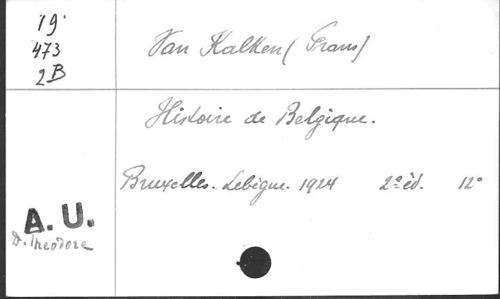 19
473
2B
Van Kalken (Frans)
Histoire de Belgique.
Bruxelles. Lebègue. 1924 2e éd. 12°
A. U.
D. Theodore